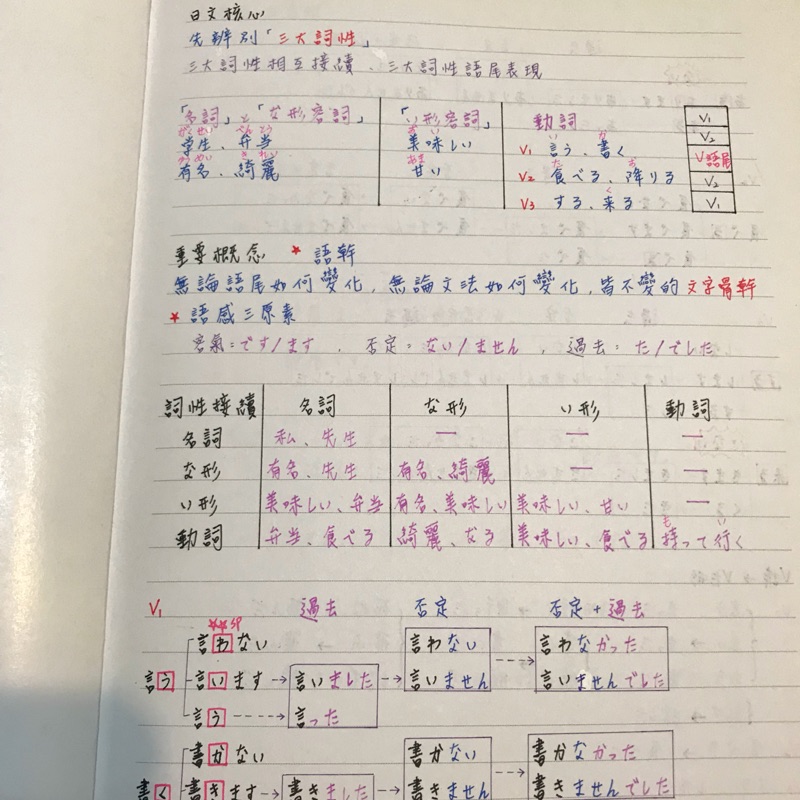 日文核心
先辨別「三大詞性」
三大詞性相互接續、三大詞性語尾表現
「名詞」と「な形容詞」 「い形容詞」 動詞 V1
がくせい べんとう お い い か V2
学生、弁当 美味しい V1 言う、書く V語尾
ゆうめい きれい あま た お
有名、綺麗 甘い V2 食べる、降りる V2
く
V3 する、来る V1
重要概念 ★ 語幹
無論語尾如何變化,無論文法如何變化,皆不變的文字骨幹
★ 語感三原素
客氣:です/ます , 否定:ない/ません , 過去:た/でした
詞性接續 名詞 な形 い形 動詞
名詞 私、先生 — — —
な形 有名、先生 有名、綺麗 — —
い形 美味しい、弁当 有名、美味しい 美味しい、甘い —
も い
動詞 弁当、食べる 綺麗、なる 美味しい、食べる 持って行く
V1 過去 否定 否定+過去
★★SP
言わない 言わない 言わなかった
言う 言います → 言いました → 言いません ---> 言いませんでした
言う ---> 言った
書かない 書かない 書かなかった
書く 書きます → 書きました 書きません 書きませんでした